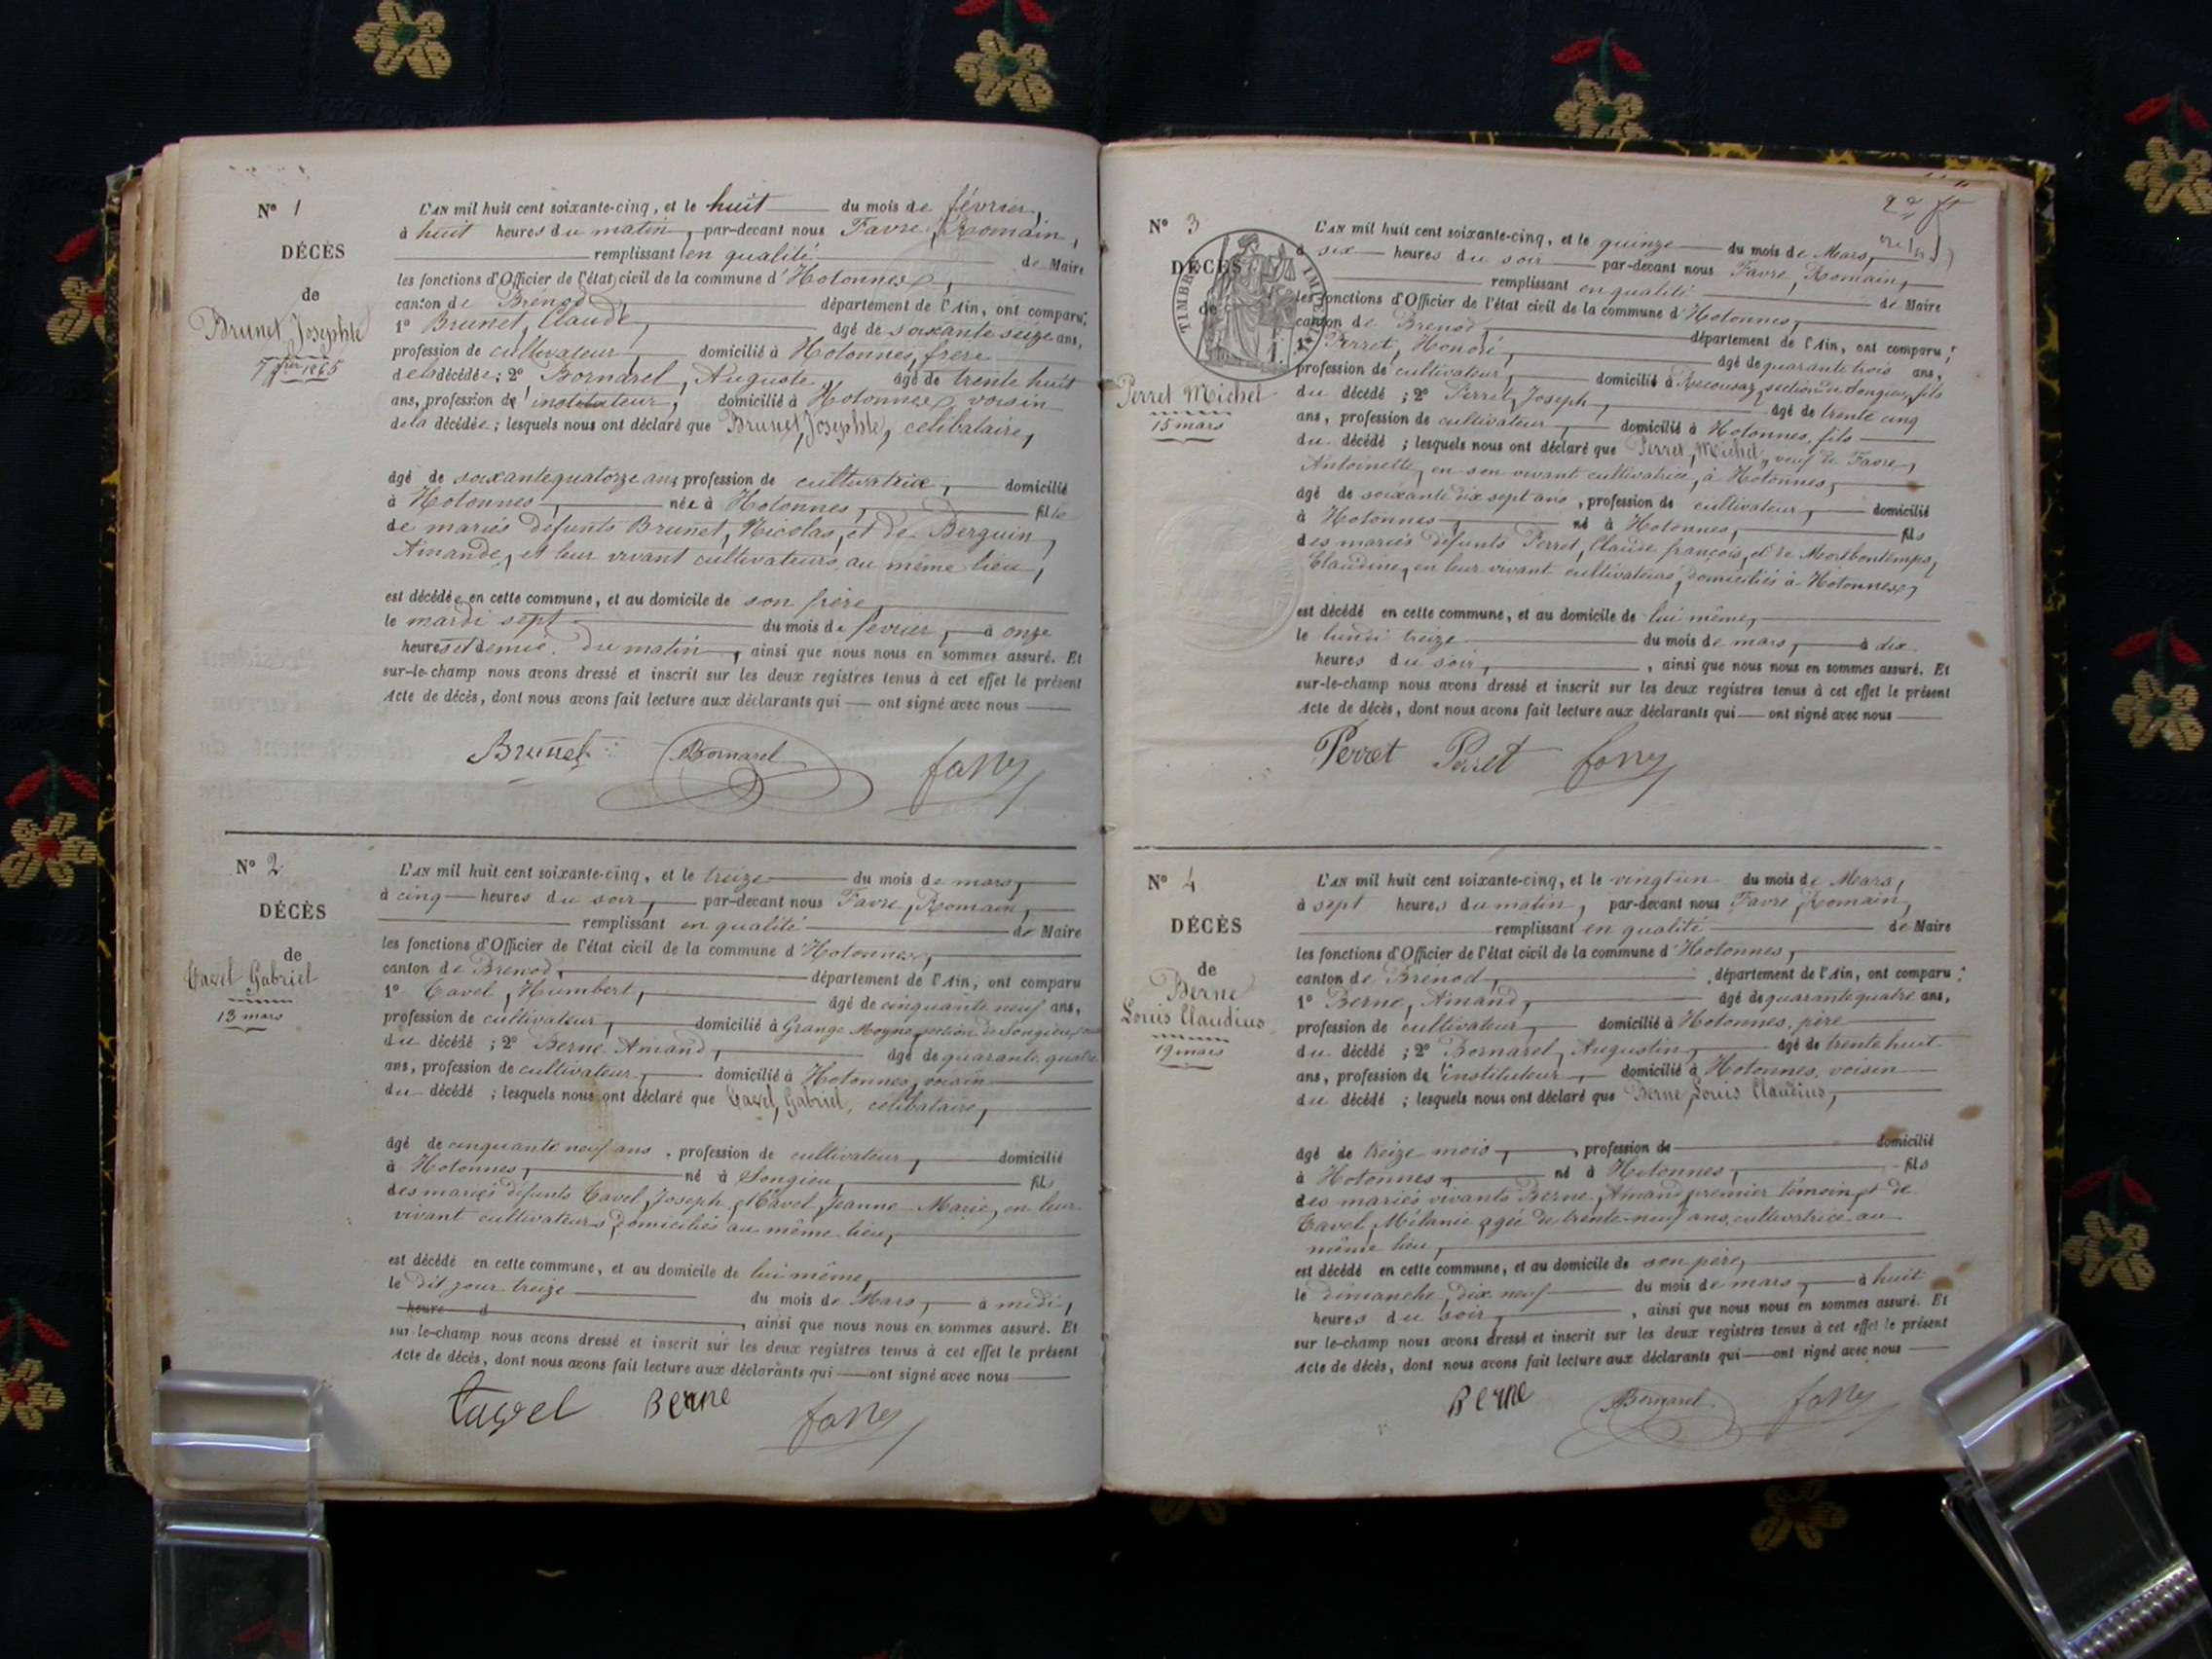 N° 1
DÉCÈS
de
Brunet Josephte
7 fer 1865
L'AN mil huit cent soixante-cinq, et le huit du mois de février,
à huit heures du matin, par-devant nous Favre, Romain,
remplissant en qualité de Maire
les fonctions d'Officier de l'état civil de la commune d'Hotonnes,
canton de Brenod, département de l'Ain, ont comparu:
1° Brunet, Claude, âgé de soixante seize ans,
profession de cultivateur, domicilié à Hotonnes, frere
de la décédée; 2° Bornarel, Auguste, âgé de trente huit
ans, profession d'instituteur, domicilié à Hotonnes, voisin
de la décédée; lesquels nous ont déclaré que Brunet, Josephte, célibataire,
âgé de soixante quatorze ans, profession de cultivatrice, domicilié
à Hotonnes, née à Hotonnes, fille
de mariés défunts Brunet, Nicolas, et de Berguin,
Amande, et leur vivant cultivateurs au même lieu,
est décédée en cette commune, et au domicile de son frère,
le mardi sept du mois de février, à onze
heures et demie du matin, ainsi que nous nous en sommes assuré. Et
sur-le-champ nous avons dressé et inscrit sur les deux registres tenus à cet effet le présent
Acte de décès, dont nous avons fait lecture aux déclarants qui ont signé avec nous
Brunet Bornarel favre
N° 2
DÉCÈS
de
Tavel Gabriel
13 mars
L'AN mil huit cent soixante-cinq, et le treize du mois de mars,
à cinq heures du soir, par-devant nous Favre, Romain,
remplissant en qualité de Maire
les fonctions d'Officier de l'état civil de la commune d'Hotonnes,
canton de Brenod, département de l'Ain, ont comparu
1° Tavel, Humbert, âgé de cinquante neuf ans,
profession de cultivateur, domicilié à Grange Moyne, section de Songieu,
du décédé; 2° Berne Amand, âgé de quarante quatre
ans, profession de cultivateur, domicilié à Hotonnes, voisin
du décédé; lesquels nous ont déclaré que Tavel, Gabriel, célibataire,
âgé de cinquante neuf ans, profession de cultivateur, domicilié
à Hotonnes, né à Songieu, fils
des mariés défunts Tavel, Joseph, et Tavel, Jeanne Marie, en leur
vivant cultivateurs, domiciliés au même lieu,
est décédé en cette commune, et au domicile de lui même,
le dit jour treize du mois de Mars, à midi,
heure d
, ainsi que nous nous en sommes assuré. Et
sur-le-champ nous avons dressé et inscrit sur les deux registres tenus à cet effet le présent
Acte de décès, dont nous avons fait lecture aux déclarants qui ont signé avec nous
tavel Berne favre
N° 3
DÉCÈS
de
TIMBRE IMPÉRIAL
Perret Michel
15 mars
L'AN mil huit cent soixante-cinq, et le quinze du mois de Mars,
à six heures du soir par-devant nous Favre, Romain,
remplissant en qualité de Maire
les fonctions d'Officier de l'état civil de la commune d'Hotonnes,
canton de Brenod, département de l'Ain, ont comparu:
1° Perret, Honoré, âgé de quarante trois ans,
profession de cultivateur, domicilié à Recousaz, section de Songieu, fils
du décédé; 2° Perret, Joseph, âgé de trente cinq
ans, profession de cultivateur, domicilié à Hotonnes, fils
du décédé; lesquels nous ont déclaré que Perret, Michel, veuf de Favre,
Antoinette, en son vivant cultivatrice, à Hotonnes,
âgé de soixante dix sept ans, profession de cultivateur, domicilié
à Hotonnes, né à Hotonnes, fils
des mariés défunts Perret, Claude françois, et de Monbontemps,
Claudine, en leur vivant cultivateurs, domiciliés à Hotonnes,
est décédé en cette commune, et au domicile de lui même,
le lundi treize du mois de mars, à dix
heures du soir, ainsi que nous nous en sommes assuré. Et
sur-le-champ nous avons dressé et inscrit sur les deux registres tenus à cet effet le présent
Acte de décès, dont nous avons fait lecture aux déclarants qui ont signé avec nous
Perret Perret favre
N° 4
DÉCÈS
de
Berne
Louis Claudius
19 mars
L'AN mil huit cent soixante-cinq, et le vingt un du mois de Mars,
à sept heures du matin, par-devant nous Favre, Romain,
remplissant en qualité de Maire
les fonctions d'Officier de l'état civil de la commune d'Hotonnes,
canton de Brénod, département de l'Ain, ont comparu:
1° Berne, Amand, âgé de quarante quatre ans,
profession de cultivateur, domicilié à Hotonnes, père
du décédé; 2° Bornarel, Augustin, âgé de trente huit
ans, profession d'instituteur, domicilié à Hotonnes, voisin
du décédé; lesquels nous ont déclaré que Berne, Louis Claudius,
âgé de treize mois, profession de domicilié
à Hotonnes, né à Hotonnes, fils
des mariés vivants Berne, Amand, premier témoin, et de
Tavel, Mélanie, agée de trente-neuf ans, cultivatrice au
même lieu,
est décédé en cette commune, et au domicile de son père,
le dimanche, dix neuf du mois de mars, à huit
heures du soir, ainsi que nous nous en sommes assuré. Et
sur-le-champ nous avons dressé et inscrit sur les deux registres tenus à cet effet le présent
Acte de décès, dont nous avons fait lecture aux déclarants qui ont signé avec nous
Berne Bornarel favre